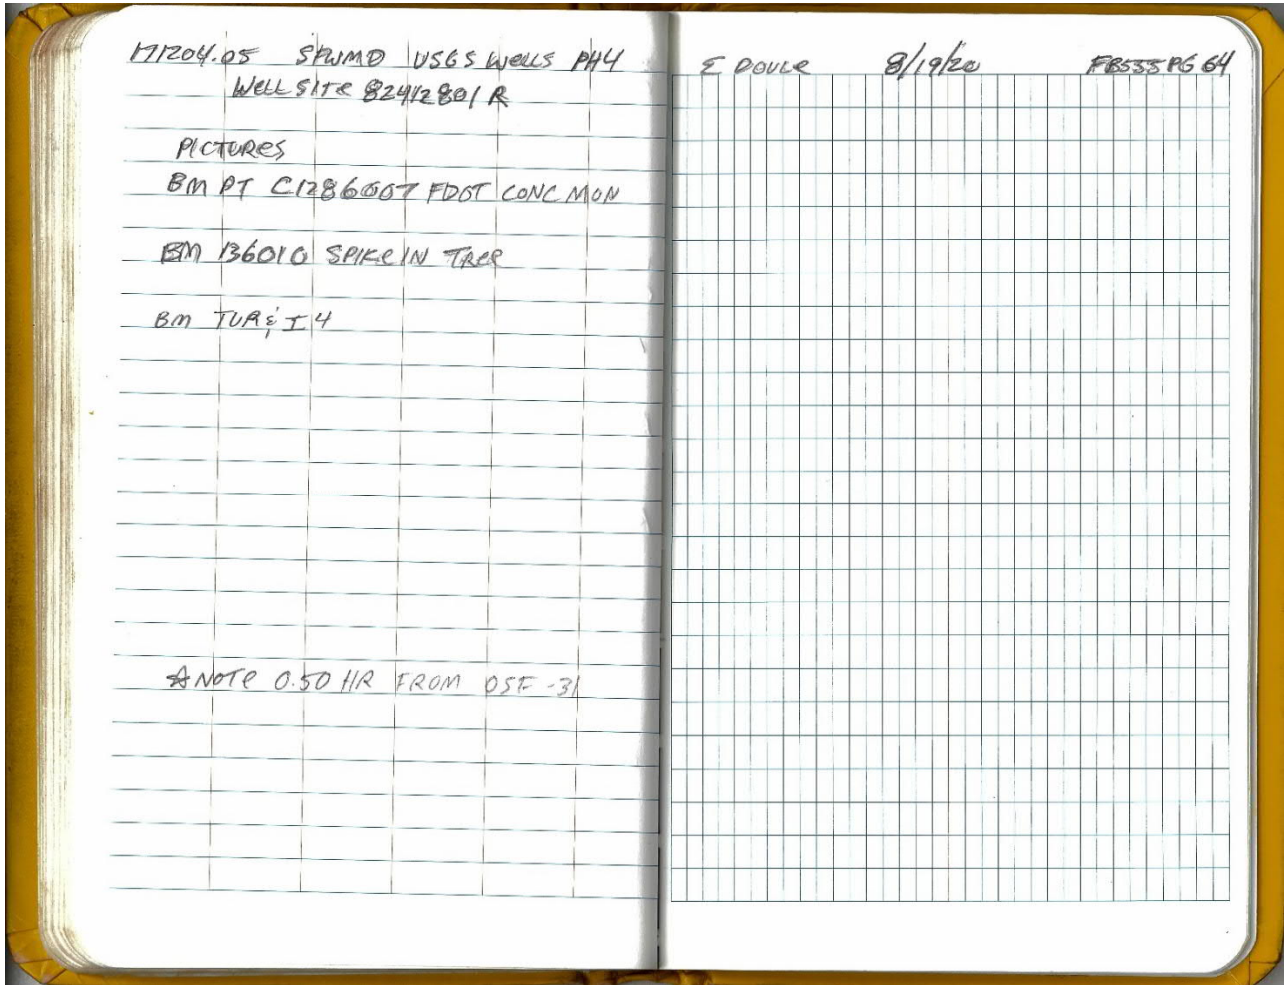 171204.05 SFWMD USGS Wells PH4
Well SITe 82412801 R
PICTURES
BM PT C1286007 FDOT CONC MON
BM 136010 SPIKe IN Tree
BM TUR & I 4
NOTe 0.50 HR FROM OSF-31
E DOYLe 8/19/20 FB535 PG 64